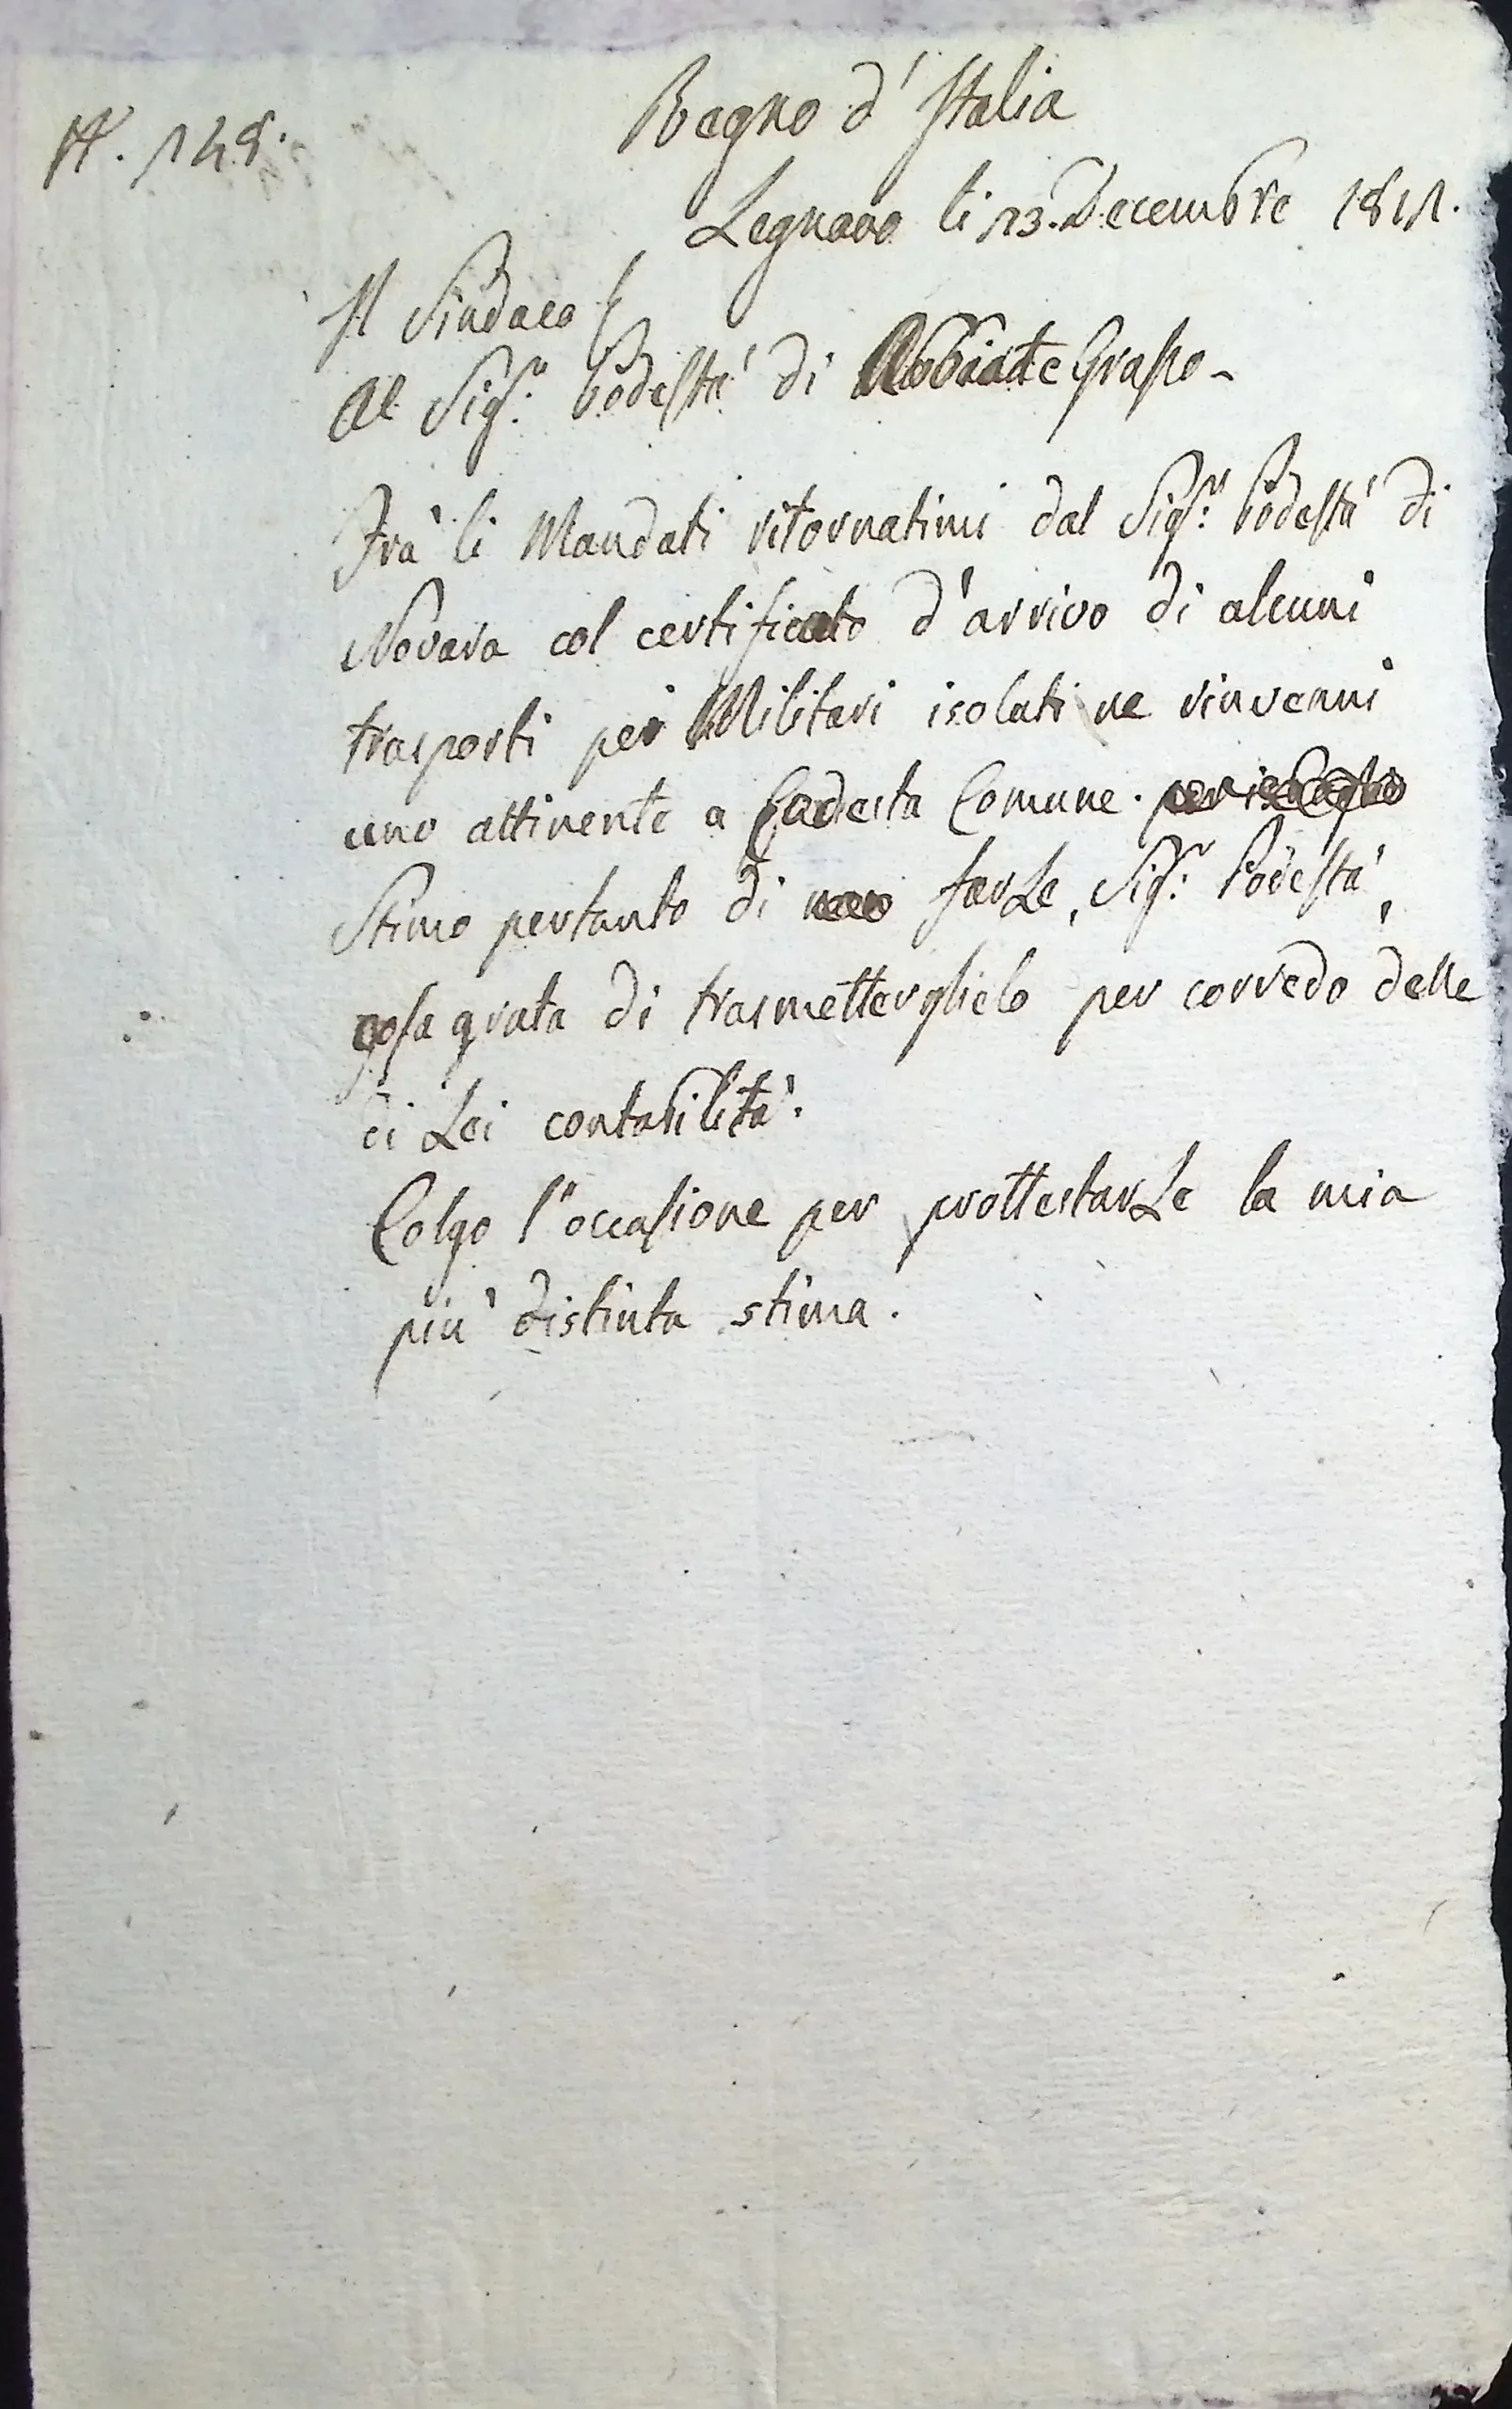 N. 148.
Regno d'Italia
Legnano li 13. Decembre 1811.
Il Sindaco
Al Sig.r Podestà di Abbiategrasso -
Frà li Mandati ritornatimi dal Sig.r Podestà di
Novara col certificato d'arrivo di alcuni
trasporti pei Militari isolati ne rinvenni
uno attinente a Codesta Comune.
Stimo pertanto di farLe, Sig.r Podestà,
cosa grata di trasmetterglielo per corredo delle
di Lei contabilità.
Colgo l'occasione per prottestarLe la mia
più distinta stima.